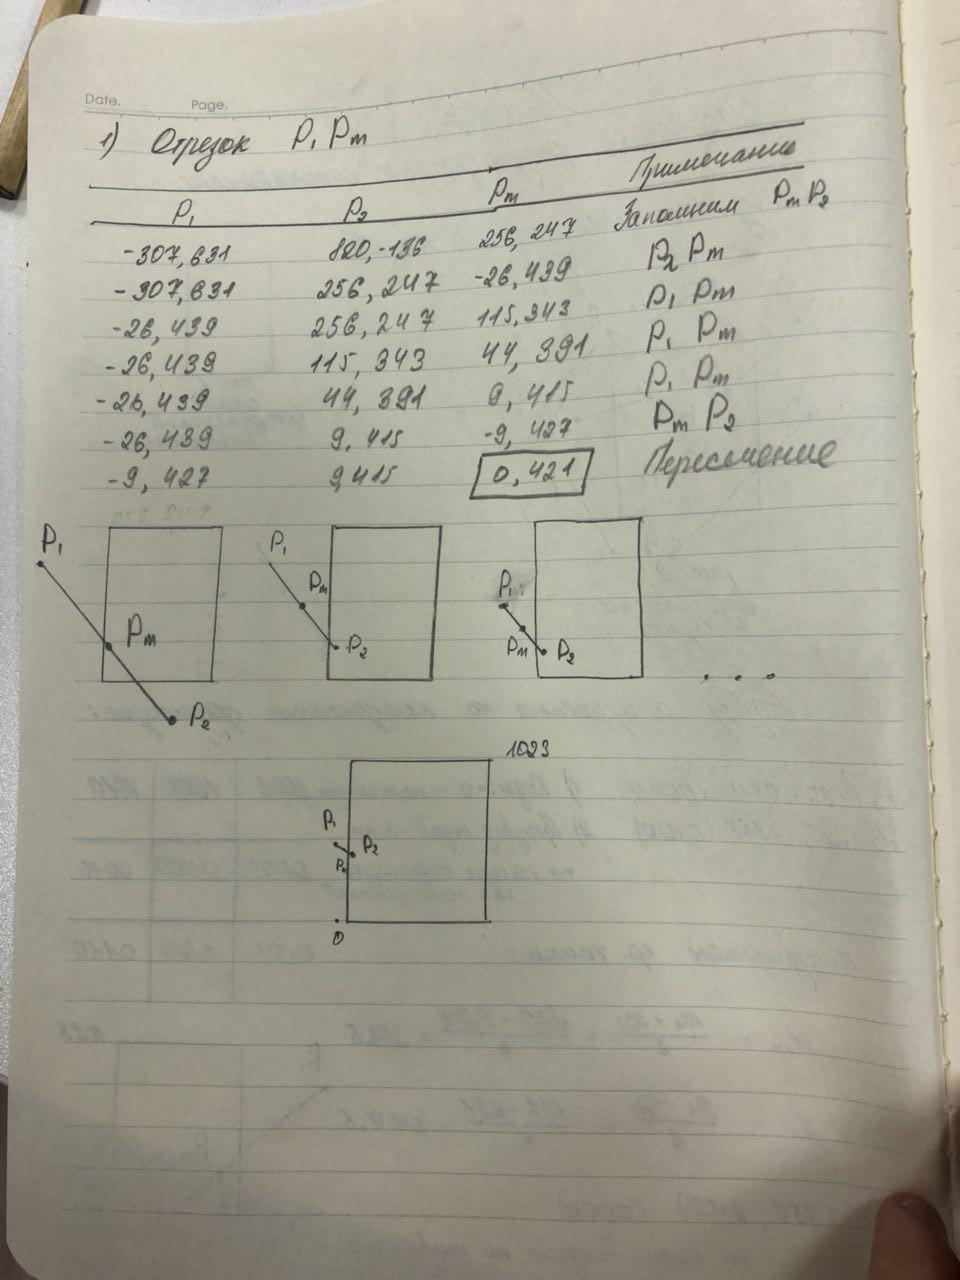 Date. Page.
1) Отрезок P₁ Pm
P₁ P₂ Pm Примечание
-307, 631 820, -136 256, 247 Запомним Pm P₂
-307, 631 256, 247 -26, 439 P₂ Pm
-26, 439 256, 247 115, 343 P₁ Pm
-26, 439 115, 343 44, 391 P₁ Pm
-26, 439 44, 391 9, 415 P₁ Pm
-26, 439 9, 415 -9, 427 Pm P₂
-9, 427 9, 415 0, 421 Пересечение
P₁ Pm P₂
P₁ Pm P₂
P₁ Pm P₂
. . .
1023
P₁ P₂
0